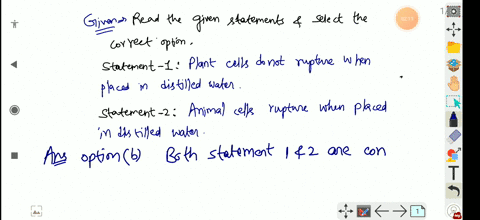 Given → Read the given statements & select the
correct option.
Statement-1: Plant cells do not rupture when
placed in distilled water.
Statement-2: Animal cells rupture when placed
in distilled water.
Ans option (b) Both statement 1 & 2 are con